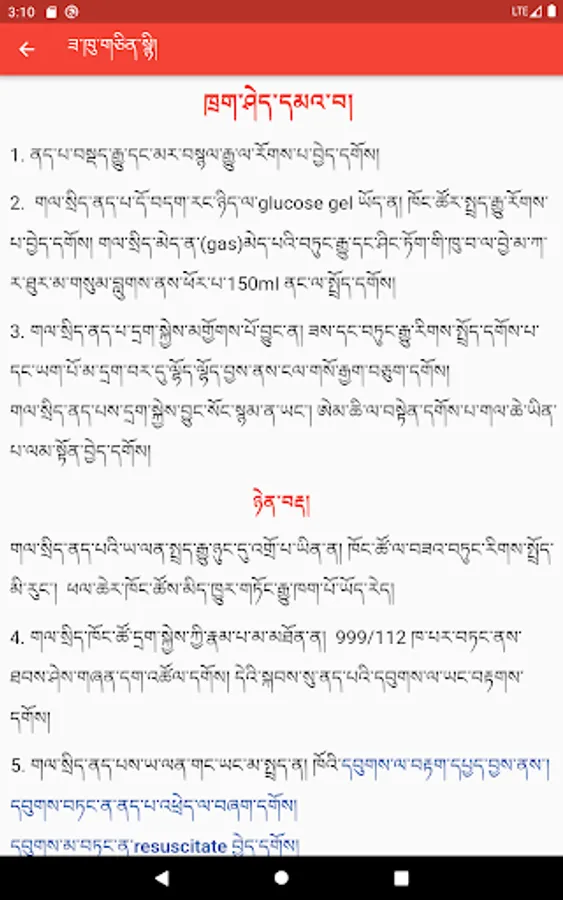 3:10 LTE
ཟ་ཁུ་གཅིན་སྙི།
ཁྲག་ཤེད་དམའ་བ།
1. ནད་པ་བསྡད་རྒྱུ་དང་མར་བསྙལ་རྒྱུ་ལ་རོགས་པ་བྱེད་དགོས།
2. གལ་སྲིད་ནད་པ་དོ་བདག་རང་ཉིད་ལ་glucose gel ཡོད་ན། ཁོང་ཚོར་སྤྲད་རྒྱུ་རོགས་
པ་བྱེད་དགོས། གལ་སྲིད་མེད་ན་(gas)མེད་པའི་བཏུང་རྒྱུ་དང་ཤིང་ཏོག་གི་ཁུ་བ་ལ་བྱེ་མ་ཀ་
ར་ཐུར་མ་གསུམ་བླུགས་ནས་ཕོར་པ་150ml ནང་ལ་སྤྲོད་དགོས།
3. གལ་སྲིད་ནད་པ་དྲག་སྐྱེས་མགྱོགས་པོ་བྱུང་ན། ཟས་དང་བཏུང་རྒྱུ་རིགས་སྤྲོད་དགོས་པ་
དང་ཡག་པོ་མ་དྲག་བར་དུ་ལྷོད་ལྷོད་བྱས་ནས་ངལ་གསོ་རྒྱག་བཅུག་དགོས།
གལ་སྲིད་ནད་པས་དྲག་སྐྱེས་བྱུང་སོང་སྙམ་ན་ཡང་། ཨེམ་ཆི་ལ་བསྟེན་དགོས་པ་གལ་ཆེ་ཡིན་
པ་ལམ་སྟོན་བྱེད་དགོས།
ཉེན་བརྡ།
གལ་སྲིད་ནད་པའི་ཡ་ལན་སྤྲད་རྒྱུ་ཉུང་དུ་འགྲོ་པ་ཡིན་ན། ཁོང་ཚོ་ལ་བཟའ་བཏུང་རིགས་སྤྲོད་
མི་རུང་། ཕལ་ཆེར་ཁོང་ཚོས་མིད་ཁྱུར་གཏོང་རྒྱུ་ཁག་པོ་ཡོད་རེད།
4. གལ་སྲིད་ཁོང་ཚོ་དྲག་སྐྱེས་ཀྱི་རྣམ་པ་མ་མཐོན་ན། 999/112 ཁ་པར་བཏང་ནས་
ཐབས་ཤེས་གཞན་དག་འཚོལ་དགོས། དེའི་སྐབས་སུ་ནད་པའི་དབུགས་ལ་ཡང་བརྟགས་
དགོས།
5. གལ་སྲིད་ནད་པས་ཡ་ལན་གང་ཡང་མ་སྤྲད་ན། ཁོའི་དབུགས་ལ་བརྟག་དཔྱད་བྱས་ནས་།
དབུགས་བཏང་ན་ནད་པ་འཕྲེད་ལ་བཞག་དགོས།
དབུགས་མ་བཏང་ན་resuscitate བྱེད་དགོས།